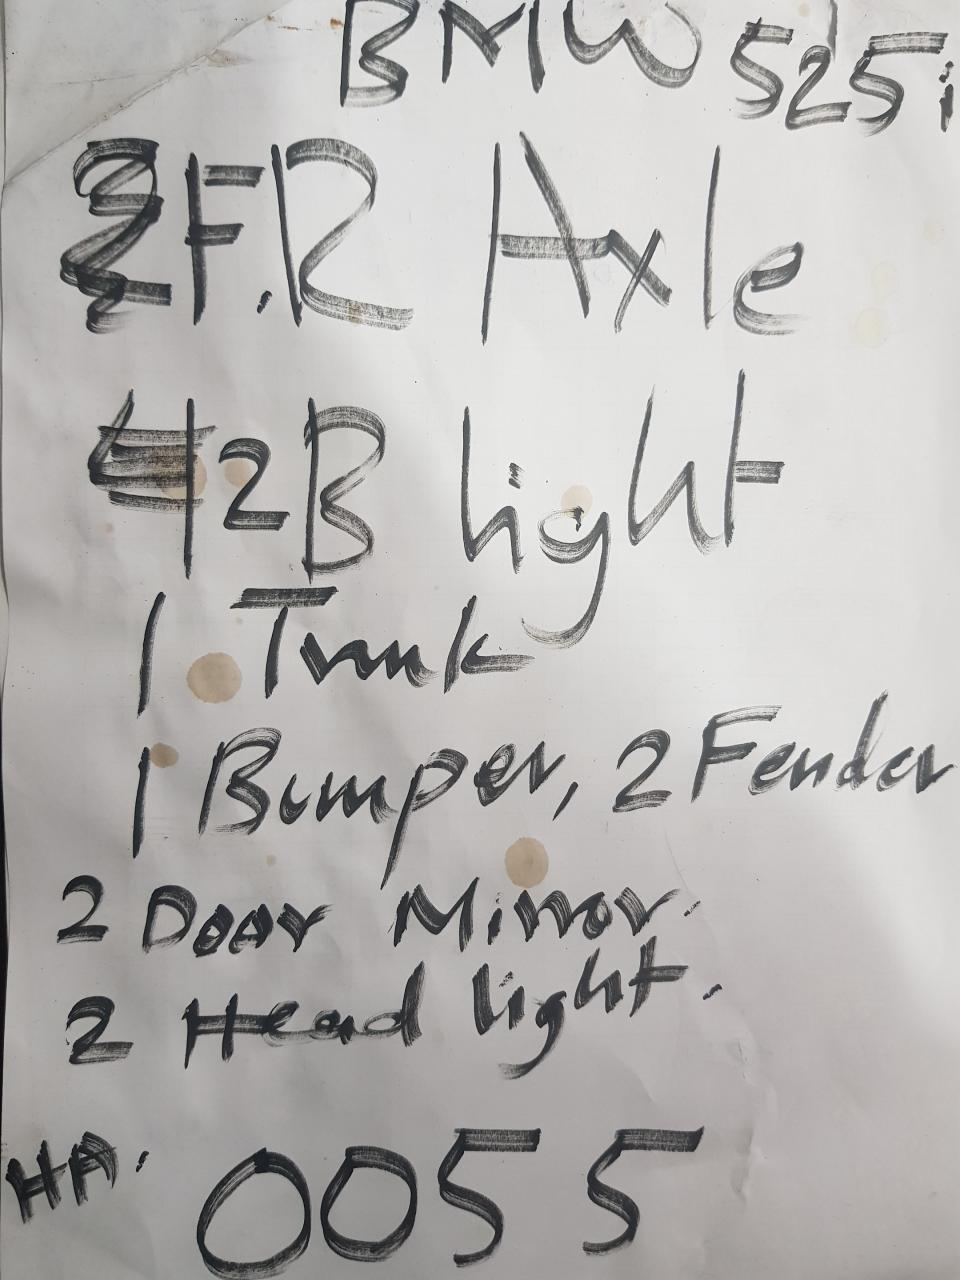 BMW 525i
2 F.R Axle
4 2 B light
1 Trunk
1 Bumper, 2 Fender
2 Door Mirror.
2 Head light.
HA. 0055